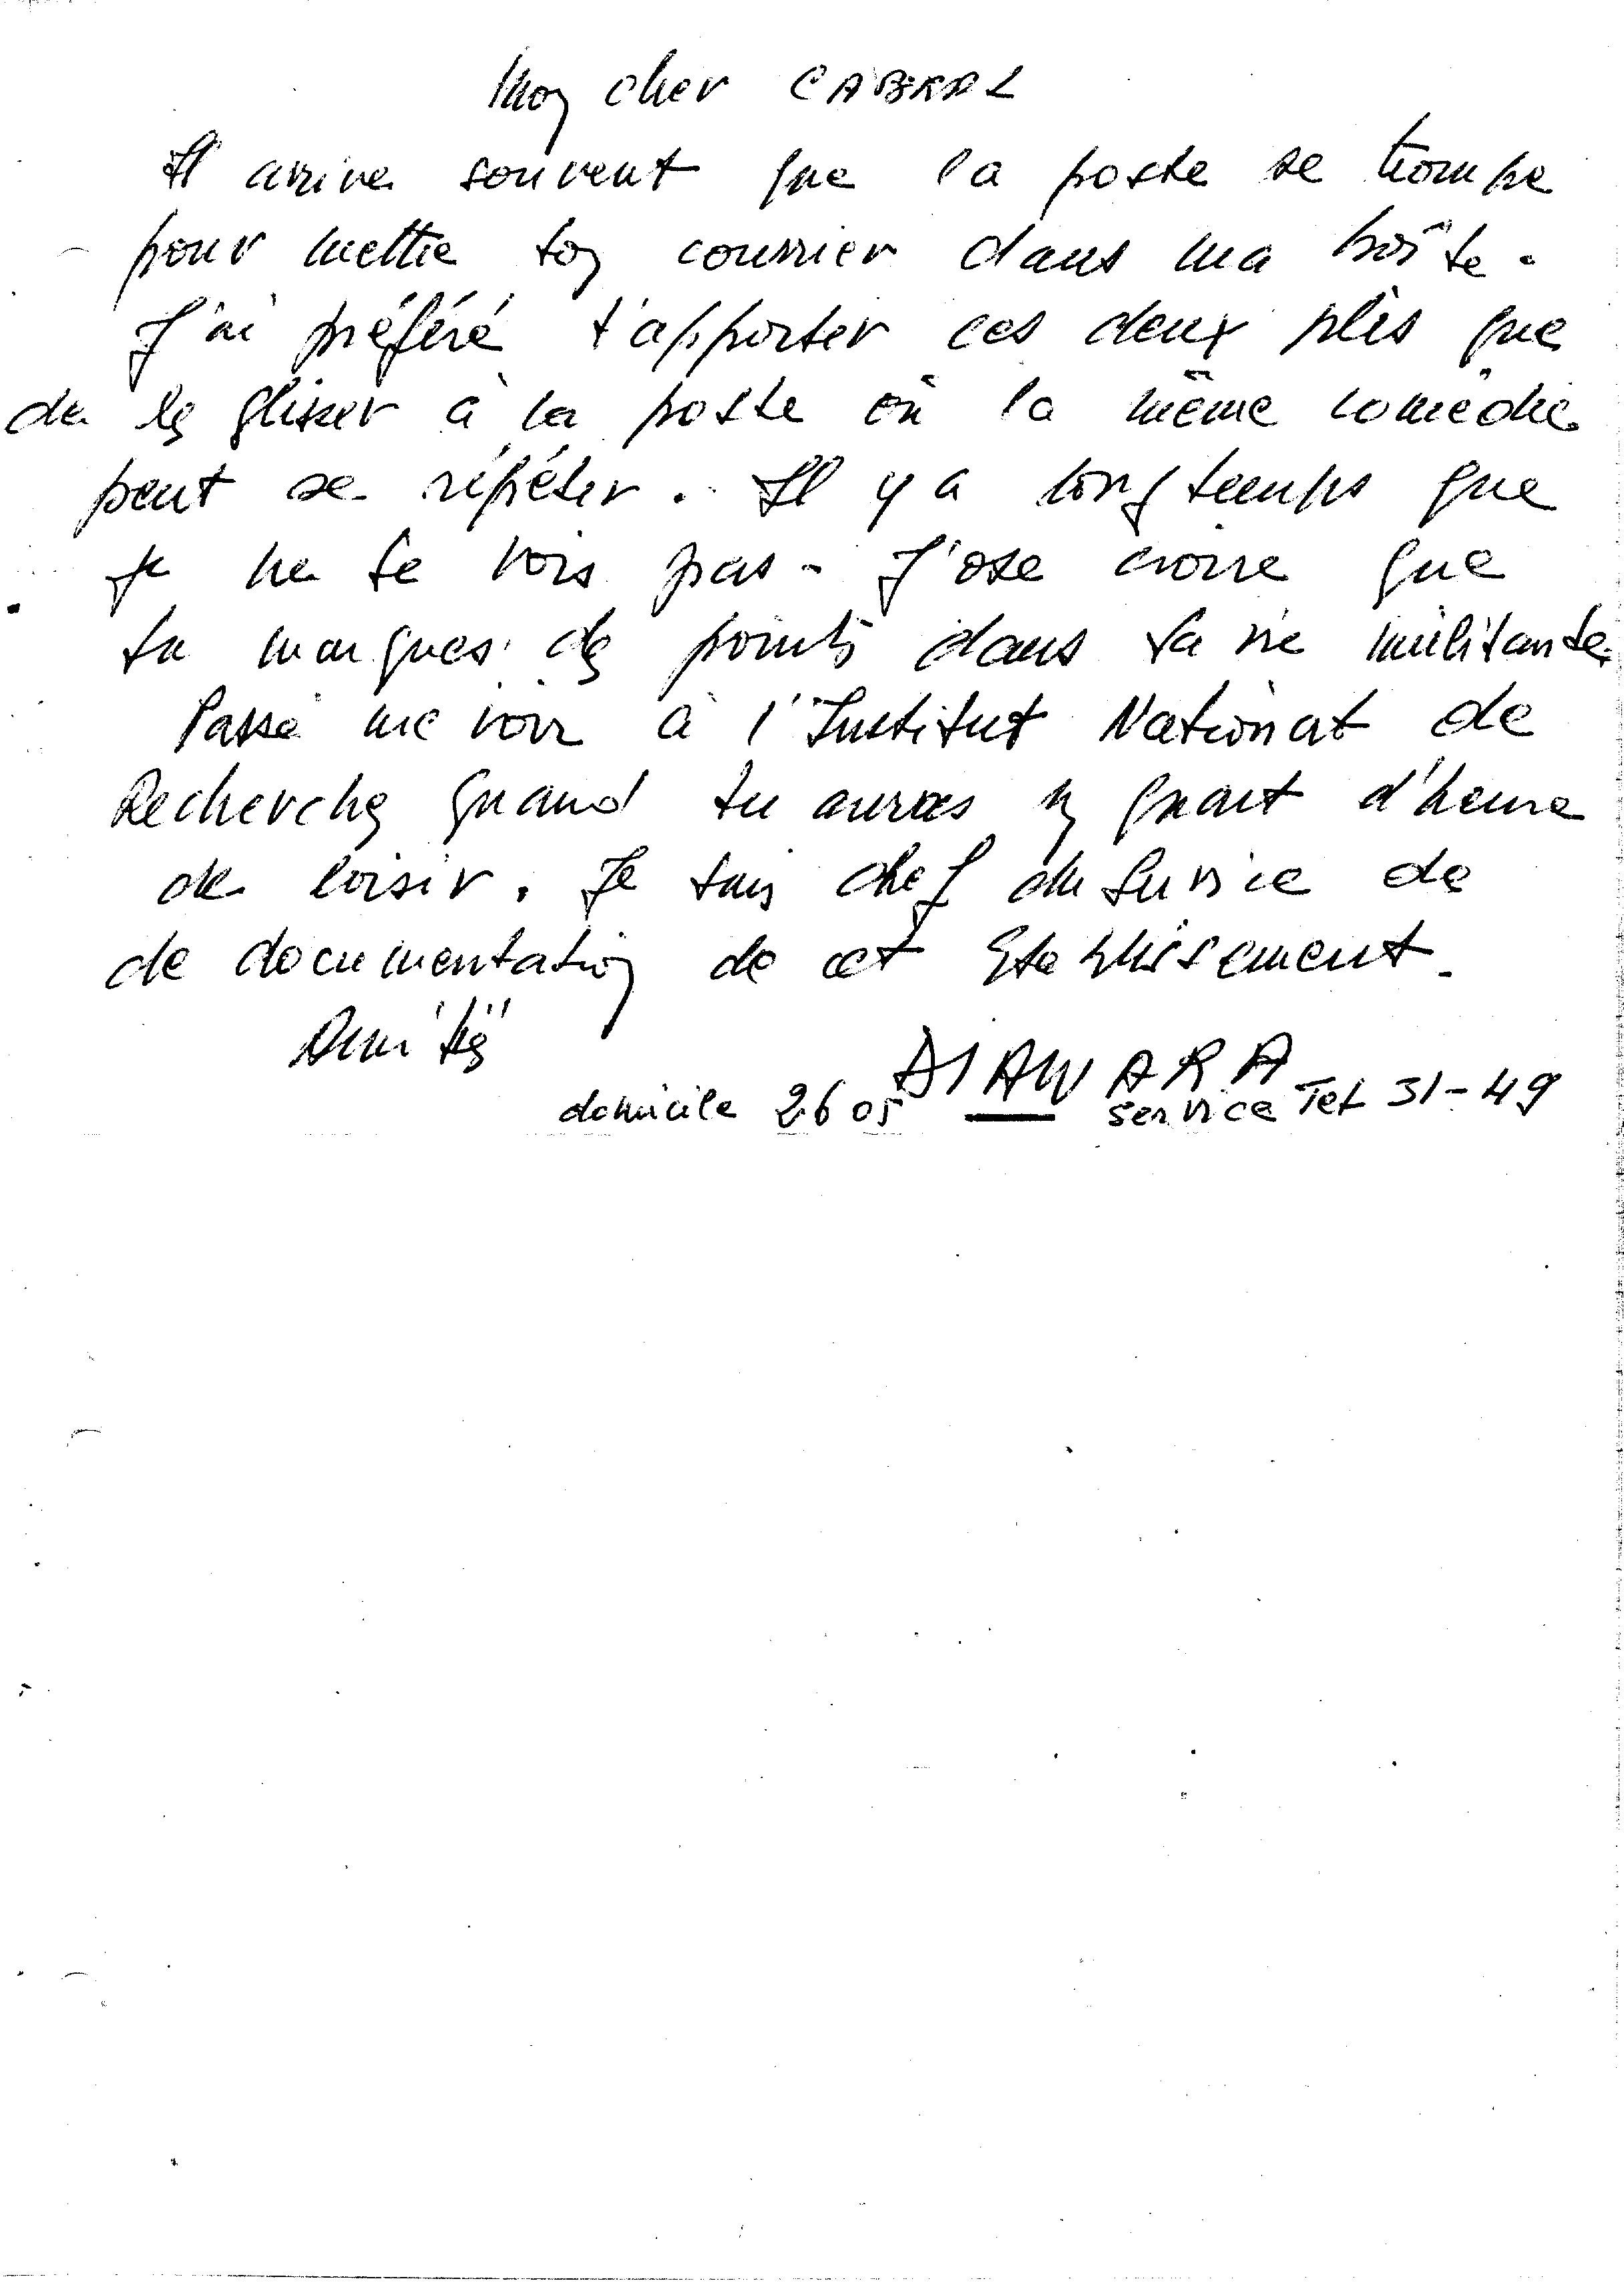 Mon cher CABRAL
Il arrive souvent que la poste se trompe
pour mettre ton courrier dans ma boîte.
J'ai préféré t'apporter ces deux plis que
de les glisser à la poste où la même comédie
peut se répéter. Il y a longtemps que
je ne te vois pas. J'ose croire que
tu marques des points dans ta vie militante.
Passe me voir à l'Institut National de
Recherches quand tu auras un quart d'heure
de loisir. Je suis chef du Service de
de documentation de cet Etablissement.
Amitiés
DIAWARA
domicile 26 05 service Tel 31-49